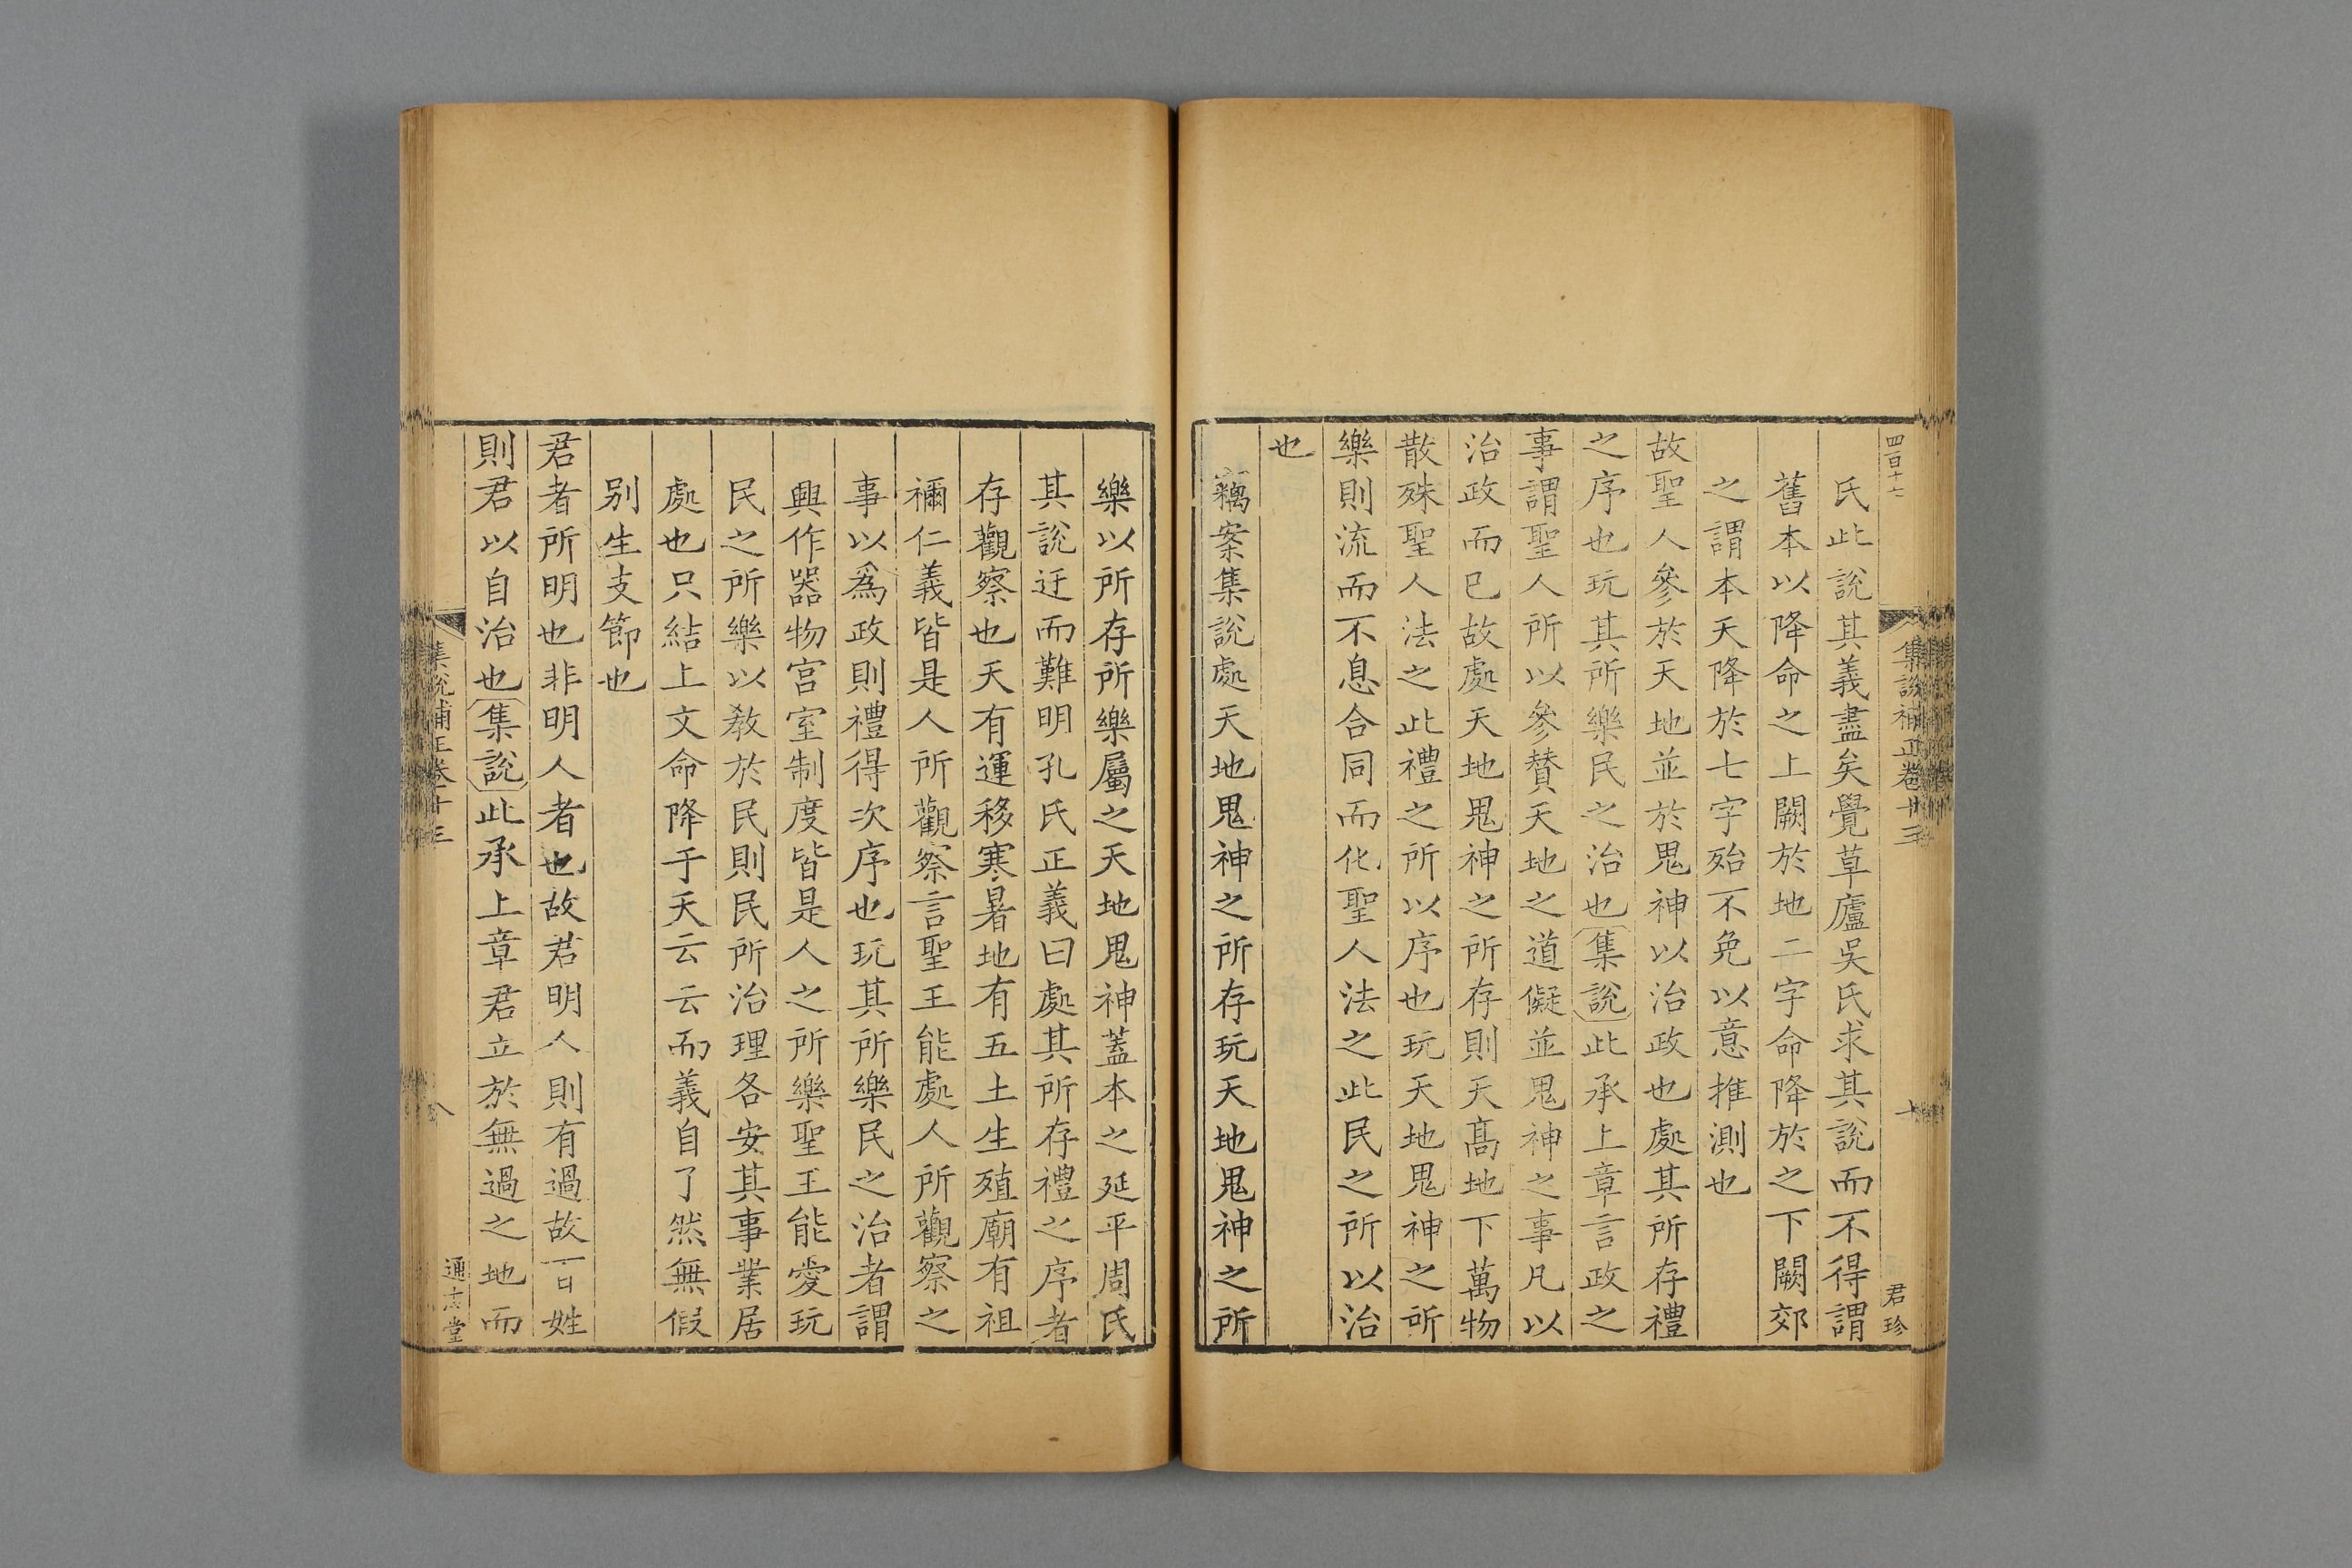 四百十七
集說補正卷十三
十
君珍
氏此說其義盡矣覺草廬吳氏求其說而不得謂
舊本以降命之上闕於地二字命降於之下闕郊
之謂本天降於七字殆不免以意推測也
故聖人參於天地並於鬼神以治政也處其所存禮
之序也玩其所樂民之治也集說此承上章言政之
事謂聖人所以參賛天地之道儗並鬼神之事凡以
治政而已故處天地鬼神之所存則天高地下萬物
散殊聖人法之此禮之所以序也玩天地鬼神之所
樂則流而不息合同而化聖人法之此民之所以治
也
竊案集說處天地鬼神之所存玩天地鬼神之所
樂以所存所樂屬之天地鬼神蓋本之延平周氏
其說迂而難明孔氏正義曰處其所存禮之序者
存觀察也天有運移寒暑地有五土生殖廟有祖
禰仁義皆是人所觀察言聖王能處人所觀察之
事以爲政則禮得次序也玩其所樂民之治者謂
興作器物宮室制度皆是人之所樂聖王能愛玩
民之所樂以敎於民則民所治理各安其事業居
處也只結上文命降于天云云而義自了然無假
别生支節也
君者所明也非明人者也故君明人則有過故百姓
則君以自治也集說此承上章君立於無過之地而
集說補正卷十三
通志堂